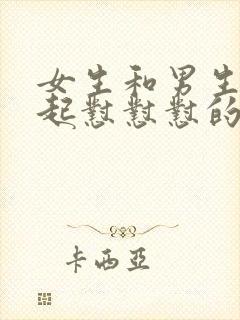 女生和男生
起懟懟懟的
卡西亞